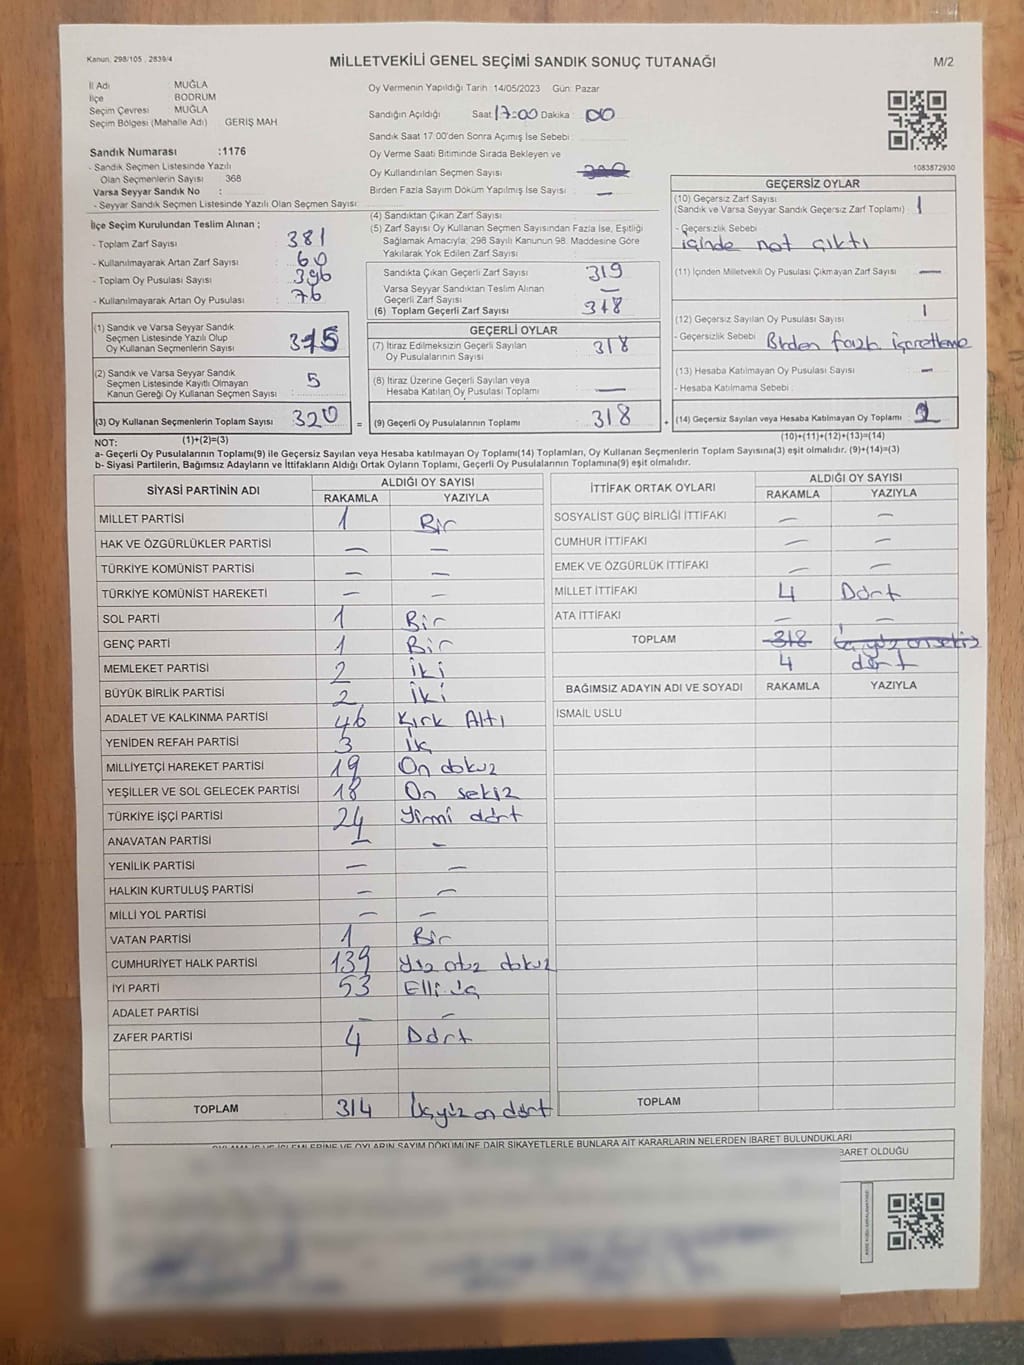 Kanun. 298/105 , 2839/4
MİLLETVEKİLİ GENEL SEÇİMİ SANDIK SONUÇ TUTANAĞI
M/2
İl Adı MUĞLA
İlçe BODRUM
Seçim Çevresi MUĞLA
Seçim Bölgesi (Mahalle Adı) GERİŞ MAH
Oy Vermenin Yapıldığı Tarih: 14/05/2023 Gün: Pazar
Sandığın Açıldığı Saat 17:00 Dakika : 00
Sandık Saat 17.00'den Sonra Açımış İse Sebebi :
Oy Verme Saati Bitiminde Sırada Bekleyen ve
Oy Kullandırılan Seçmen Sayısı
Birden Fazla Sayım Döküm Yapılmış İse Sayısı : —
1083872930
Sandık Numarası :1176
- Sandık Seçmen Listesinde Yazılı
Olan Seçmenlerin Sayısı 368
Varsa Seyyar Sandık No :
- Seyyar Sandık Seçmen Listesinde Yazılı Olan Seçmen Sayısı:
İlçe Seçim Kurulundan Teslim Alınan ;
- Toplam Zarf Sayısı 381
- Kullanılmayarak Artan Zarf Sayısı : 60
- Toplam Oy Pusulası Sayısı : 396
- Kullanılmayarak Artan Oy Pusulası : 76
(1) Sandık ve Varsa Seyyar Sandık
Seçmen Listesinde Yazılı Olup
Oy Kullanan Seçmenlerin Sayısı 315
(2) Sandık ve Varsa Seyyar Sandık
Seçmen Listesinde Kayıtlı Olmayan
Kanun Gereği Oy Kullanan Seçmen Sayısı : 5
(3) Oy Kullanan Seçmenlerin Toplam Sayısı 320
(1)+(2)=(3)
(4) Sandıktan Çıkan Zarf Sayısı :
(5) Zarf Sayısı Oy Kullanan Seçmen Sayısından Fazla İse, Eşitliği
Sağlamak Amacıyla; 298 Sayılı Kanunun 98. Maddesine Göre
Yakılarak Yok Edilen Zarf Sayısı :
Sandıkta Çıkan Geçerli Zarf Sayısı : 319
Varsa Seyyar Sandıktan Teslim Alınan
Geçerli Zarf Sayısı : —
(6) Toplam Geçerli Zarf Sayısı : 318
GEÇERLİ OYLAR
(7) İtiraz Edilmeksizin Geçerli Sayılan
Oy Pusulalarının Sayısı : 318
(8) İtiraz Üzerine Geçerli Sayılan veya
Hesaba Katılan Oy Pusulası Toplamı : —
= (9) Geçerli Oy Pusulalarının Toplamı : 318
GEÇERSİZ OYLAR
(10) Geçersiz Zarf Sayısı
(Sandık ve Varsa Seyyar Sandık Geçersiz Zarf Toplamı) : 1
- Geçersizlik Sebebi
içinde not çıktı
(11) İçinden Milletvekili Oy Pusulası Çıkmayan Zarf Sayısı : —
(12) Geçersiz Sayılan Oy Pusulası Sayısı : 1
- Geçersizlik Sebebi : Birden fazla işaretleme
(13) Hesaba Katılmayan Oy Pusulası Sayısı : —
- Hesaba Katılmama Sebebi :
+ (14) Geçersiz Sayılan veya Hesaba Katılmayan Oy Toplamı : 2
(10)+(11)+(12)+(13)=(14)
NOT:
a- Geçerli Oy Pusulalarının Toplamı(9) ile Geçersiz Sayılan veya Hesaba katılmayan Oy Toplamı(14) Toplamları, Oy Kullanan Seçmenlerin Toplam Sayısına(3) eşit olmalıdır. (9)+(14)=(3)
b- Siyasi Partilerin, Bağımsız Adayların ve İttifakların Aldığı Ortak Oyların Toplamı, Geçerli Oy Pusulalarının Toplamına(9) eşit olmalıdır.
SİYASİ PARTİNİN ADI ALDIĞI OY SAYISI
RAKAMLA YAZIYLA
MİLLET PARTİSİ 1 Bir
HAK VE ÖZGÜRLÜKLER PARTİSİ — —
TÜRKİYE KOMÜNİST PARTİSİ — —
TÜRKİYE KOMÜNİST HAREKETİ — —
SOL PARTİ 1 Bir
GENÇ PARTİ 1 Bir
MEMLEKET PARTİSİ 2 İki
BÜYÜK BİRLİK PARTİSİ 2 İki
ADALET VE KALKINMA PARTİSİ 46 Kırk Altı
YENİDEN REFAH PARTİSİ 3 Üç
MİLLİYETÇİ HAREKET PARTİSİ 19 On dokuz
YEŞİLLER VE SOL GELECEK PARTİSİ 18 On sekiz
TÜRKİYE İŞÇİ PARTİSİ 24 Yirmi dört
ANAVATAN PARTİSİ — —
YENİLİK PARTİSİ — —
HALKIN KURTULUŞ PARTİSİ — —
MİLLİ YOL PARTİSİ — —
VATAN PARTİSİ 1 Bir
CUMHURİYET HALK PARTİSİ 139 Yüz otuz dokuz
İYİ PARTİ 53 Elli üç
ADALET PARTİSİ — —
ZAFER PARTİSİ 4 Dört
TOPLAM 314 Üçyüz on dört
İTTİFAK ORTAK OYLARI ALDIĞI OY SAYISI
RAKAMLA YAZIYLA
SOSYALİST GÜÇ BİRLİĞİ İTTİFAKI — —
CUMHUR İTTİFAKI — —
EMEK VE ÖZGÜRLÜK İTTİFAKI — —
MİLLET İTTİFAKI 4 Dört
ATA İTTİFAKI — —
TOPLAM 318 üç yüz onsekiz
4 dört
BAĞIMSIZ ADAYIN ADI VE SOYADI RAKAMLA YAZIYLA
İSMAİL USLU
TOPLAM
OYLAMA İŞ VE İŞLEMLERİNE VE OYLARIN SAYIM DÖKÜMÜNE DAİR ŞİKAYETLERLE BUNLARA AİT KARARLARIN NELERDEN İBARET BULUNDUKLARI
BARET OLDUĞU